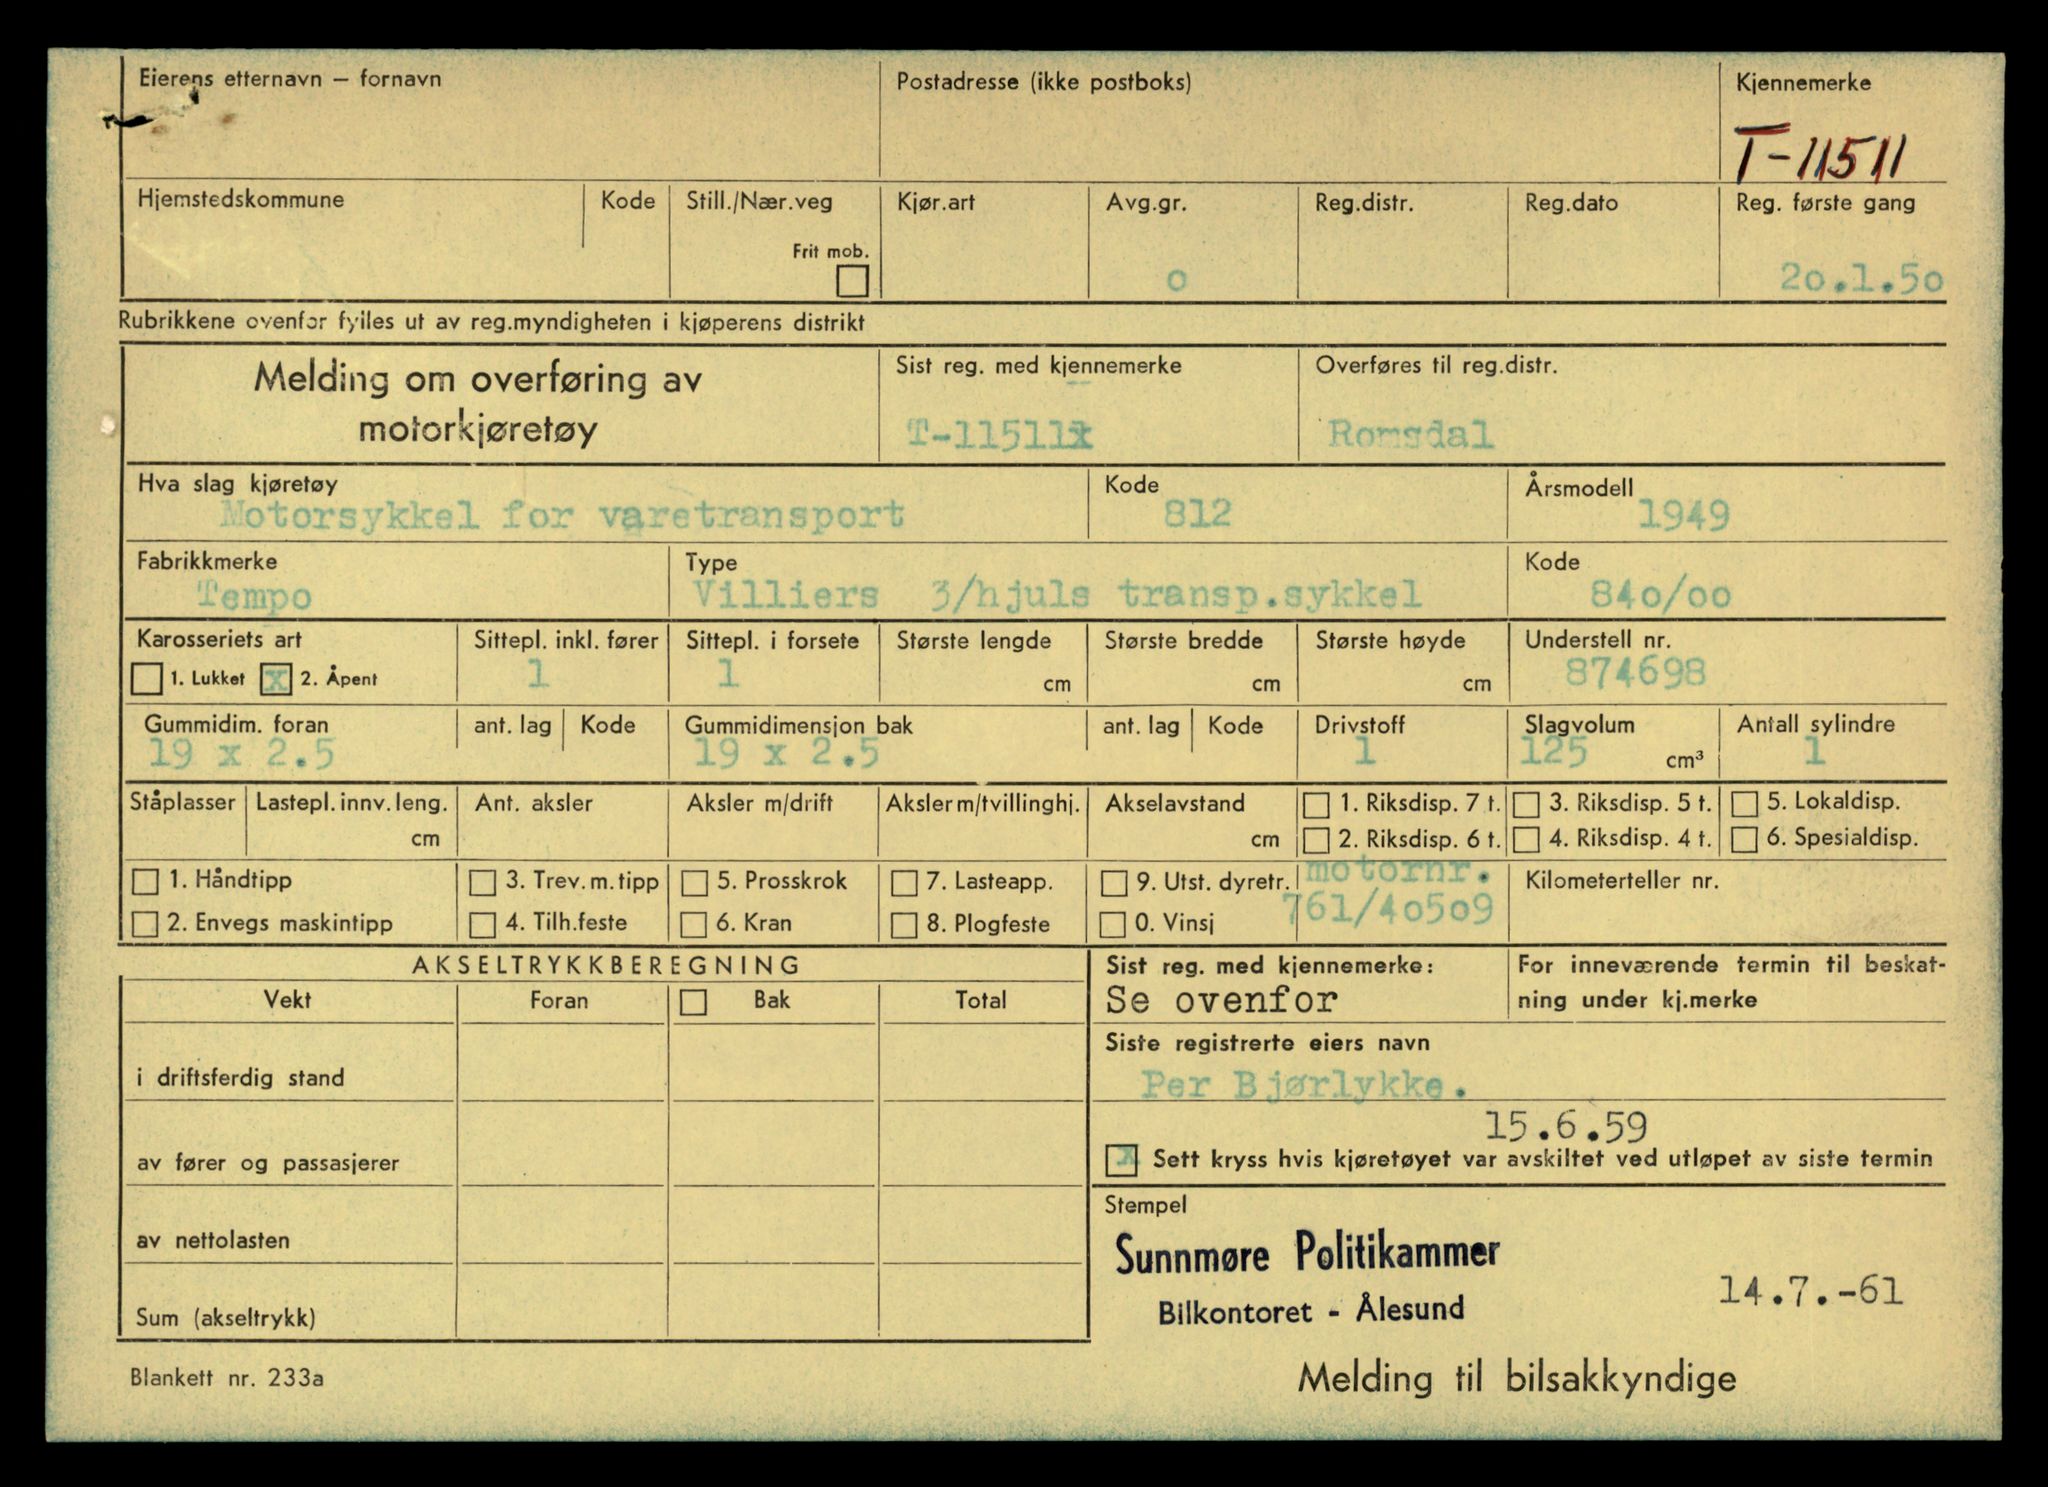 Eierens etternavn – fornavn Postadresse (ikke postboks) Kjennemerke
T-11511
Hjemstedskommune Kode Still./Nær.veg Kjør.art Avg.gr. Reg.distr. Reg.dato Reg. første gang
Frit mob.
0 20.1.50
Rubrikkene ovenfor fylles ut av reg.myndigheten i kjøperens distrikt
Melding om overføring av Sist reg. med kjennemerke Overføres til reg.distr.
motorkjøretøy T-11511 Romsdal
Hva slag kjøretøy Kode Årsmodell
Motorsykkel for varetransport 812 1949
Fabrikkmerke Type Kode
Tempo Villiers 3/hjuls transp.sykkel 840/00
Karosseriets art Sittepl. inkl. fører Sittepl. i forsete Største lengde Største bredde Største høyde Understell nr.
1. Lukket x 2. Åpent 1 1 cm cm cm 874698
Gummidim. foran ant. lag Kode Gummidimensjon bak ant. lag Kode Drivstoff Slagvolum Antall sylindre
19 x 2.5 19 x 2.5 1 125 cm³ 1
Ståplasser Lastepl. innv. leng. Ant. aksler Aksler m/drift Aksler m/tvillinghj. Akselavstand 1. Riksdisp. 7 t. 3. Riksdisp. 5 t. 5. Lokaldisp.
cm cm 2. Riksdisp. 6 t. 4. Riksdisp. 4 t. 6. Spesialdisp.
1. Håndtipp 3. Trev. m. tipp 5. Prosskrok 7. Lasteapp. 9. Utst. dyretr. motornr. Kilometerteller nr.
2. Envegs maskintipp 4. Tilh.feste 6. Kran 8. Plogfeste 0. Vinsj 761/40509
AKSELTRYKKBEREGNING Sist reg. med kjennemerke: For inneværende termin til beskat-
Vekt Foran Bak Total Se ovenfor ning under kj.merke
Siste registrerte eiers navn
i driftsferdig stand Per Bjørlykke.
15.6.59
av fører og passasjerer x Sett kryss hvis kjøretøyet var avskiltet ved utløpet av siste termin
Stempel
av nettolasten Sunnmøre Politikammer
14.7.-61
Sum (akseltrykk) Bilkontoret - Ålesund
Blankett nr. 233a Melding til bilsakkyndige